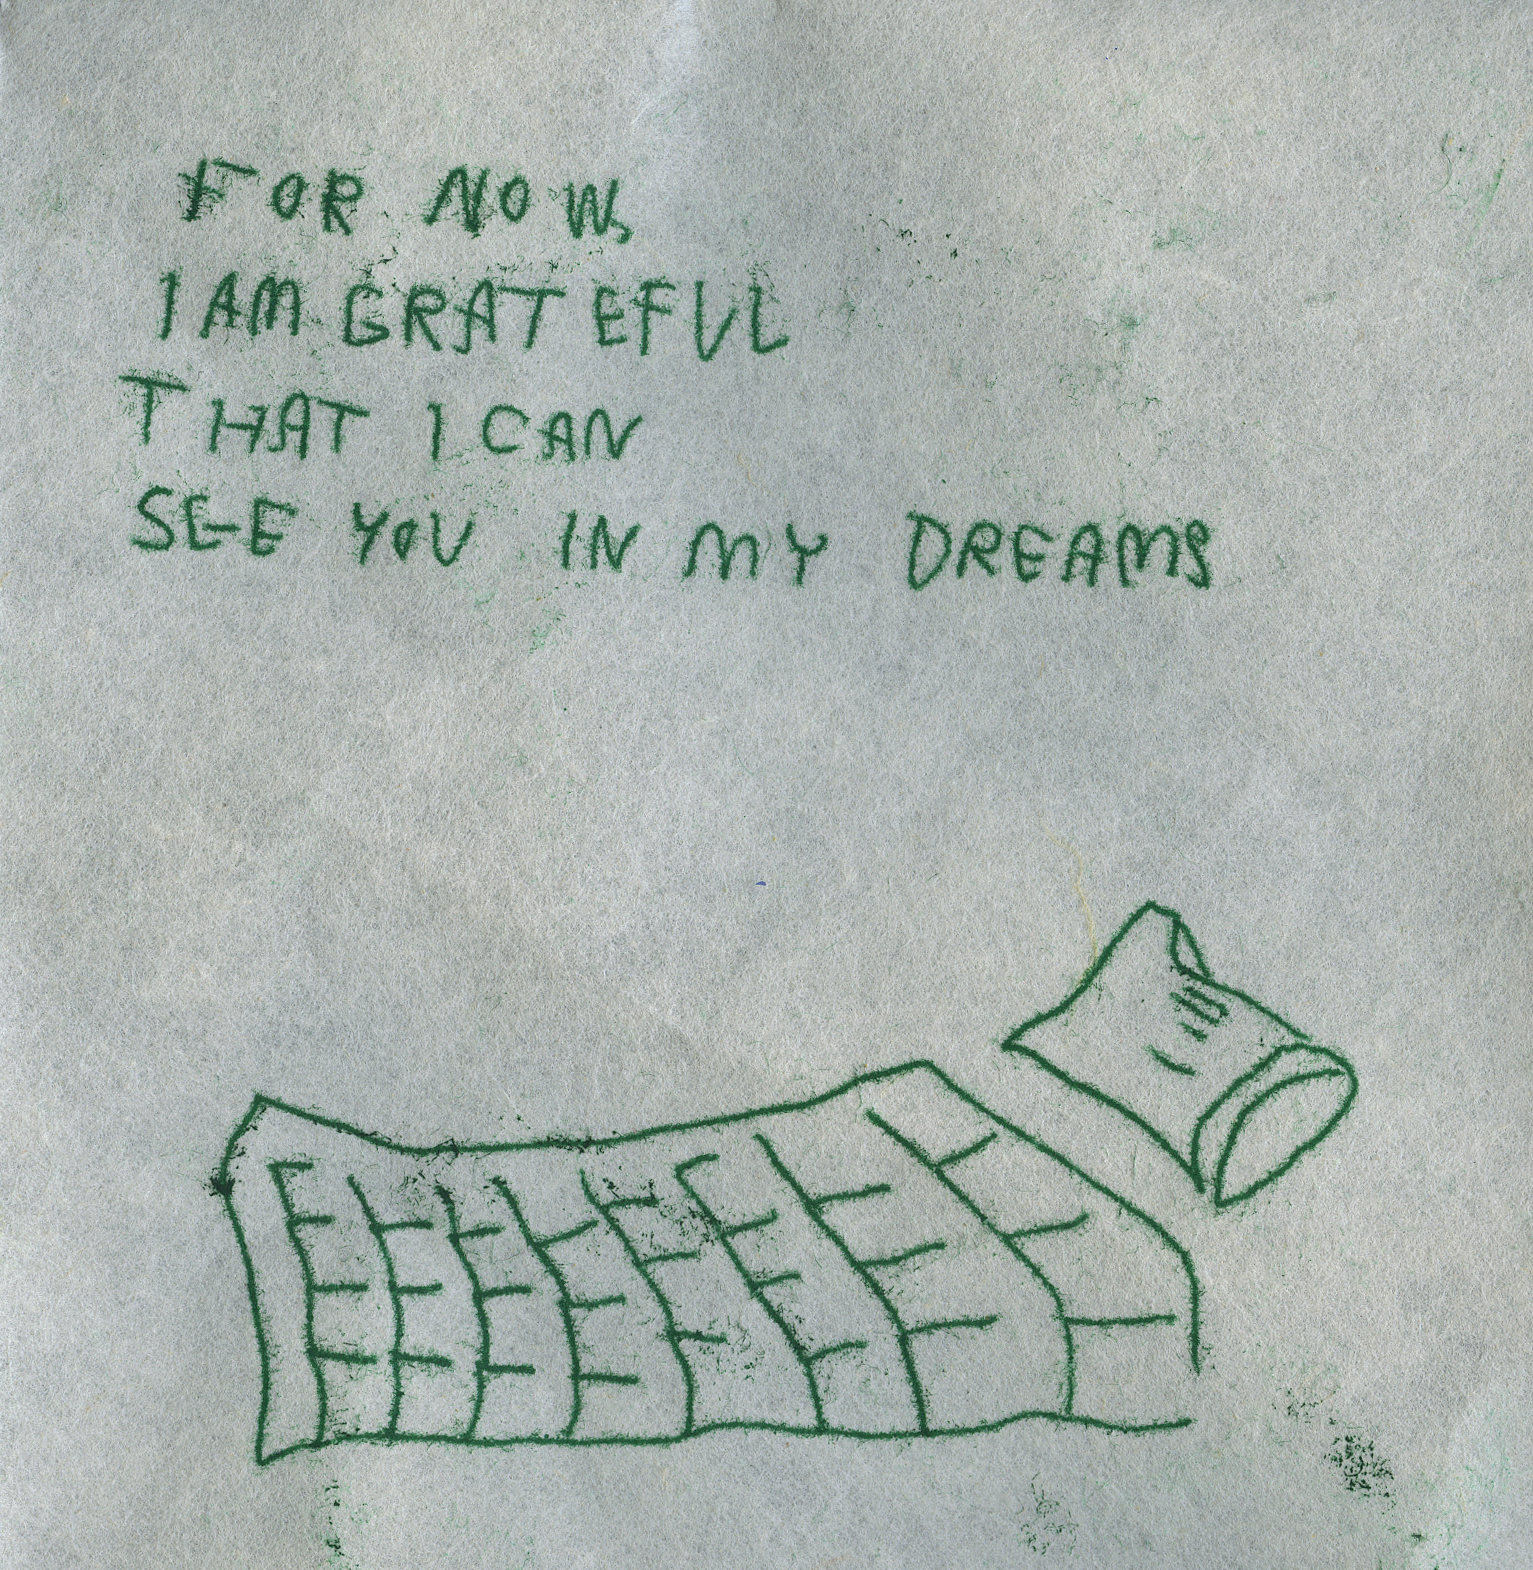 FOR NOW,
I AM GRATEFUL
THAT I CAN
SEE YOU IN MY DREAMS